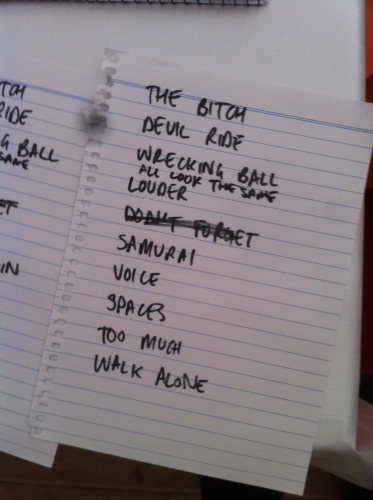 THE BITCH
DEVIL RIDE
WRECKING BALL
ALL LOOK THE SAME
LOUDER
DON'T FORGET
SAMURAI
VOICE
SPACES
TOO MUCH
WALK ALONE
TCH
RIDE
G BALL
SAME
ET
IN